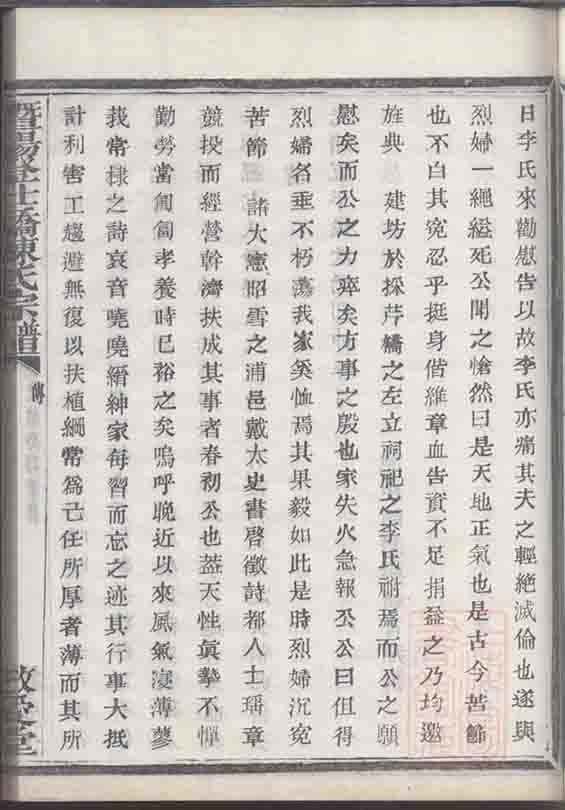 日李氏來勸慰告以故李氏亦痛其夫之輕絶滅倫也遂與
烈婦一繩縊死公聞之愴然曰是天地正氣也是古今苦節
也不白其寃忍乎挺身偕維章血告資不足捐益之乃均邀
旌典 建坊於採芹橋之左立祠祀之李氏祔焉而公之願
慰矣而公之力瘁矣方事之殷也家失火急報公公曰但得
烈婦名垂不朽蕩我家奚恤焉其果毅如此是時烈婦沉寃
苦節 諸大憲昭雪之浦邑戴太史書啓徵詩都人士琱章
競投而經營幹濟扶成其事者春初公也葢天性眞摯不惲
勤勞當個個孝養時已裕之矣嗚呼晚近以來風氣寖薄蓼
莪常棣之詩哀音嘵嘵縉紳家每習而忘之迹其行事大抵
計利害工趨避無復以扶植綱常爲己任所厚者薄而其所
暨陽 仕橋陳氏宗譜
傳
敘 堂